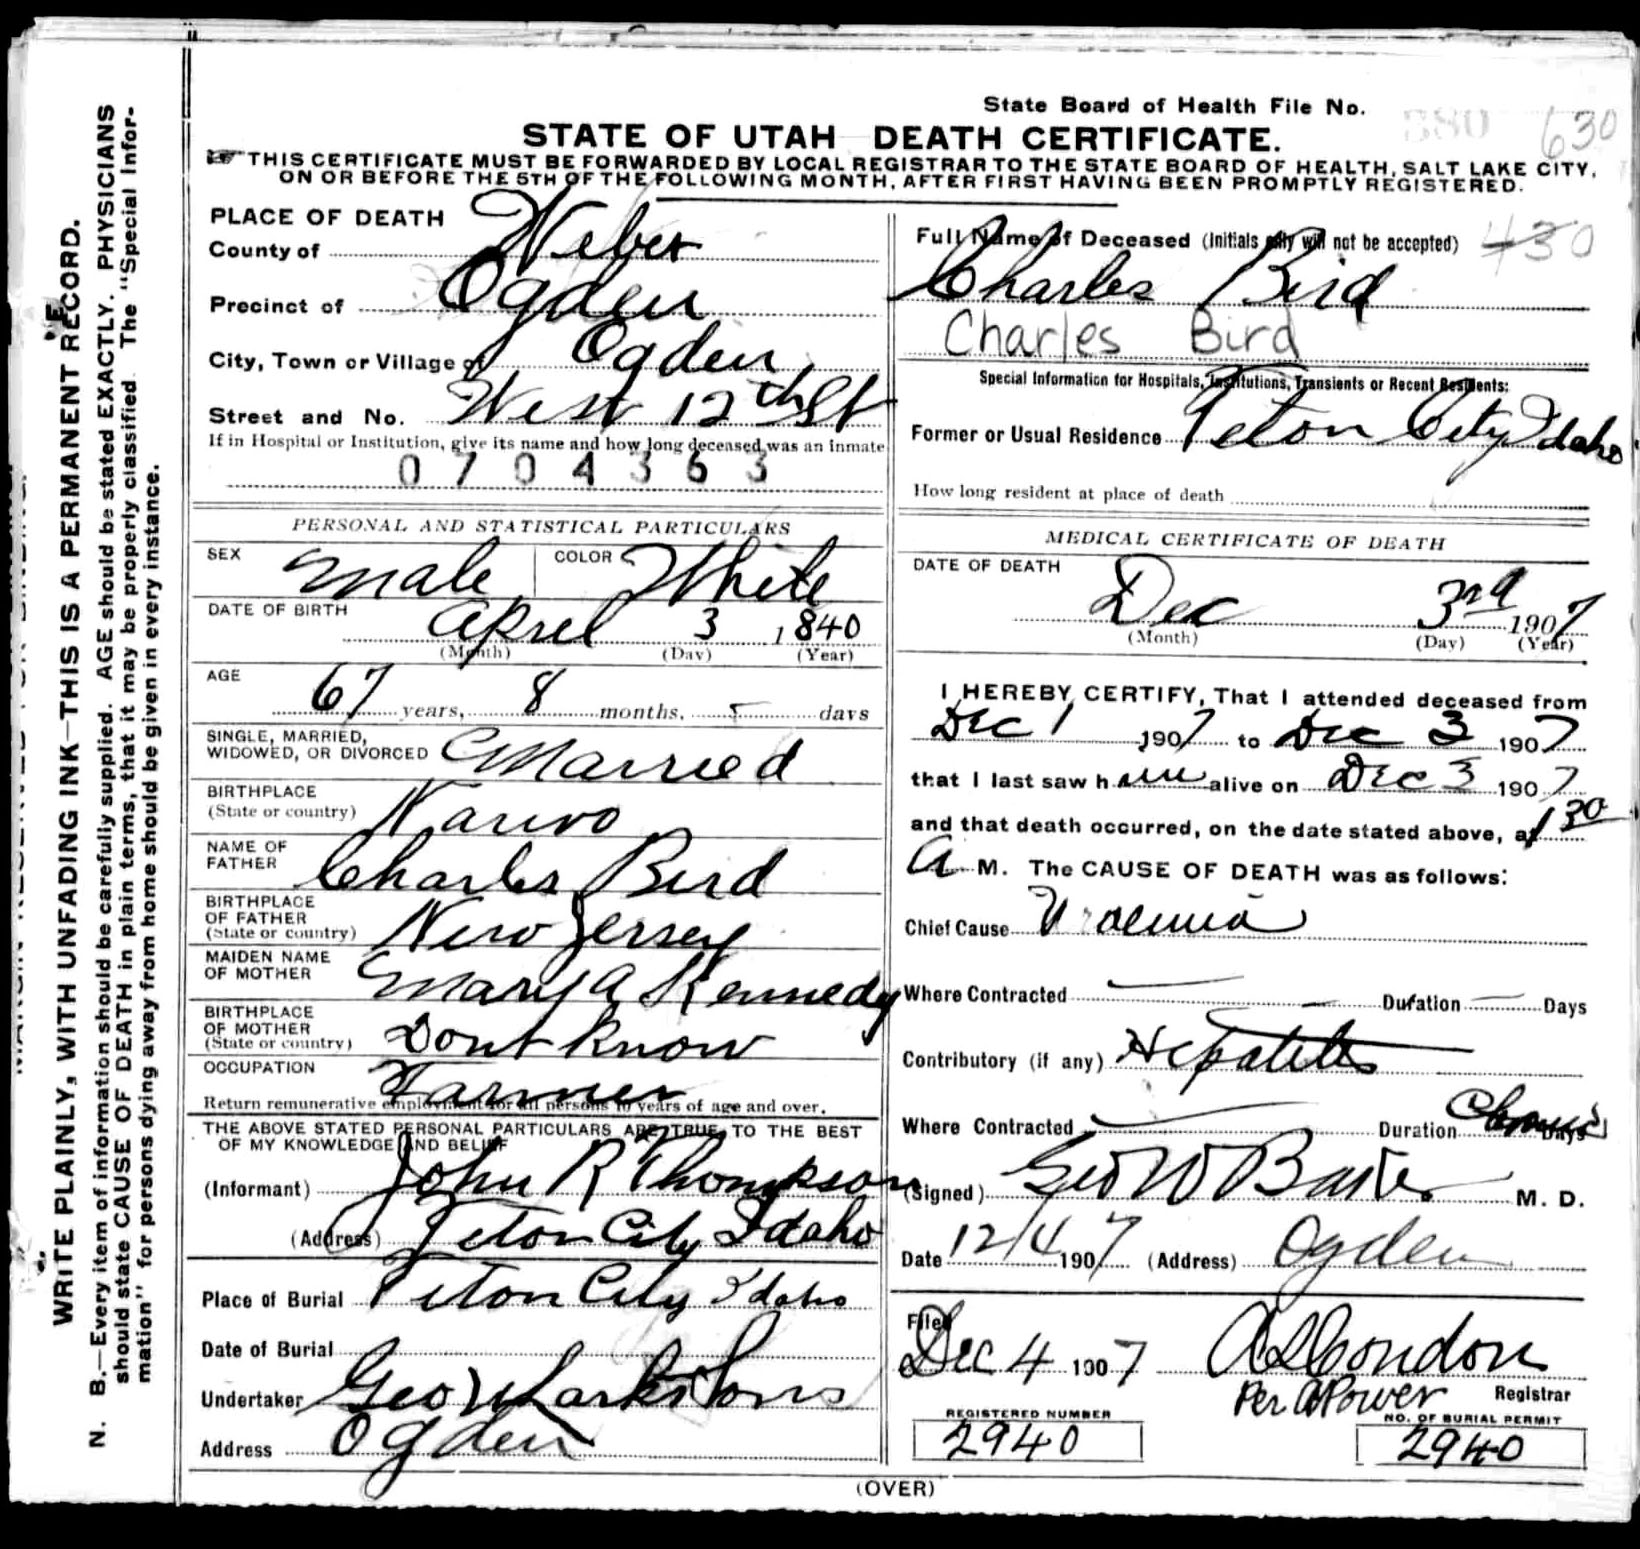 State Board of Health File No. 630
STATE OF UTAH DEATH CERTIFICATE.
THIS CERTIFICATE MUST BE FORWARDED BY LOCAL REGISTRAR TO THE STATE BOARD OF HEALTH, SALT LAKE CITY,
ON OR BEFORE THE 5TH OF THE FOLLOWING MONTH, AFTER FIRST HAVING BEEN PROMPTLY REGISTERED.
WRITE PLAINLY, WITH UNFADING INK—THIS IS A PERMANENT RECORD.
N. B.—Every item of information should be carefully supplied. AGE should be stated EXACTLY. PHYSICIANS
should state CAUSE OF DEATH in plain terms, that it may be properly classified. The "Special Infor-
mation" for persons dying away from home should be given in every instance.
PLACE OF DEATH
County of Weber
Precinct of Ogden
City, Town or Village of Ogden
Street and No. West 12th St
If in Hospital or Institution, give its name and how long deceased was an inmate
0704363
PERSONAL AND STATISTICAL PARTICULARS
SEX Male COLOR White
DATE OF BIRTH April 3 1840
(Month) (Day) (Year)
AGE
67 years, 8 months, - days
SINGLE, MARRIED,
WIDOWED, OR DIVORCED Married
BIRTHPLACE
(State or country) Nauvo
NAME OF
FATHER Charles Bird
BIRTHPLACE
OF FATHER
(State or country) New Jersey
MAIDEN NAME
OF MOTHER Mary A Kennedy
BIRTHPLACE
OF MOTHER
(State or country) Dont Know
OCCUPATION Farmer
Return remunerative employment for all persons 10 years of age and over.
THE ABOVE STATED PERSONAL PARTICULARS ARE TRUE TO THE BEST
OF MY KNOWLEDGE AND BELIEF
(Informant) John R Thompson
(Address) Teton City Idaho
Place of Burial Teton City Idaho
Date of Burial
Undertaker Geo W Larkin Sons
Address Ogden
Full Name of Deceased (Initials only will not be accepted) 430
Charles Bird
Charles Bird
Special Information for Hospitals, Institutions, Transients or Recent Residents:
Former or Usual Residence Teton City Idaho
How long resident at place of death
MEDICAL CERTIFICATE OF DEATH
DATE OF DEATH
Dec 3rd 1907
(Month) (Day) (Year)
I HEREBY CERTIFY, That I attended deceased from
Dec 1 1907 to Dec 3 1907
that I last saw him alive on Dec 3 1907
and that death occurred, on the date stated above, at 1 30
A M. The CAUSE OF DEATH was as follows:
Chief Cause Uraemia
Where Contracted — Duration — Days
Contributory (if any) Hepatitis
Where Contracted Duration Chronic Days
(Signed) Geo W Baker M. D.
Date 12/4 1907 (Address) Ogden
Filed
Dec 4 1907 A S Condon
Per A Power Registrar
REGISTERED NUMBER
2940
NO. OF BURIAL PERMIT
2940
(OVER)